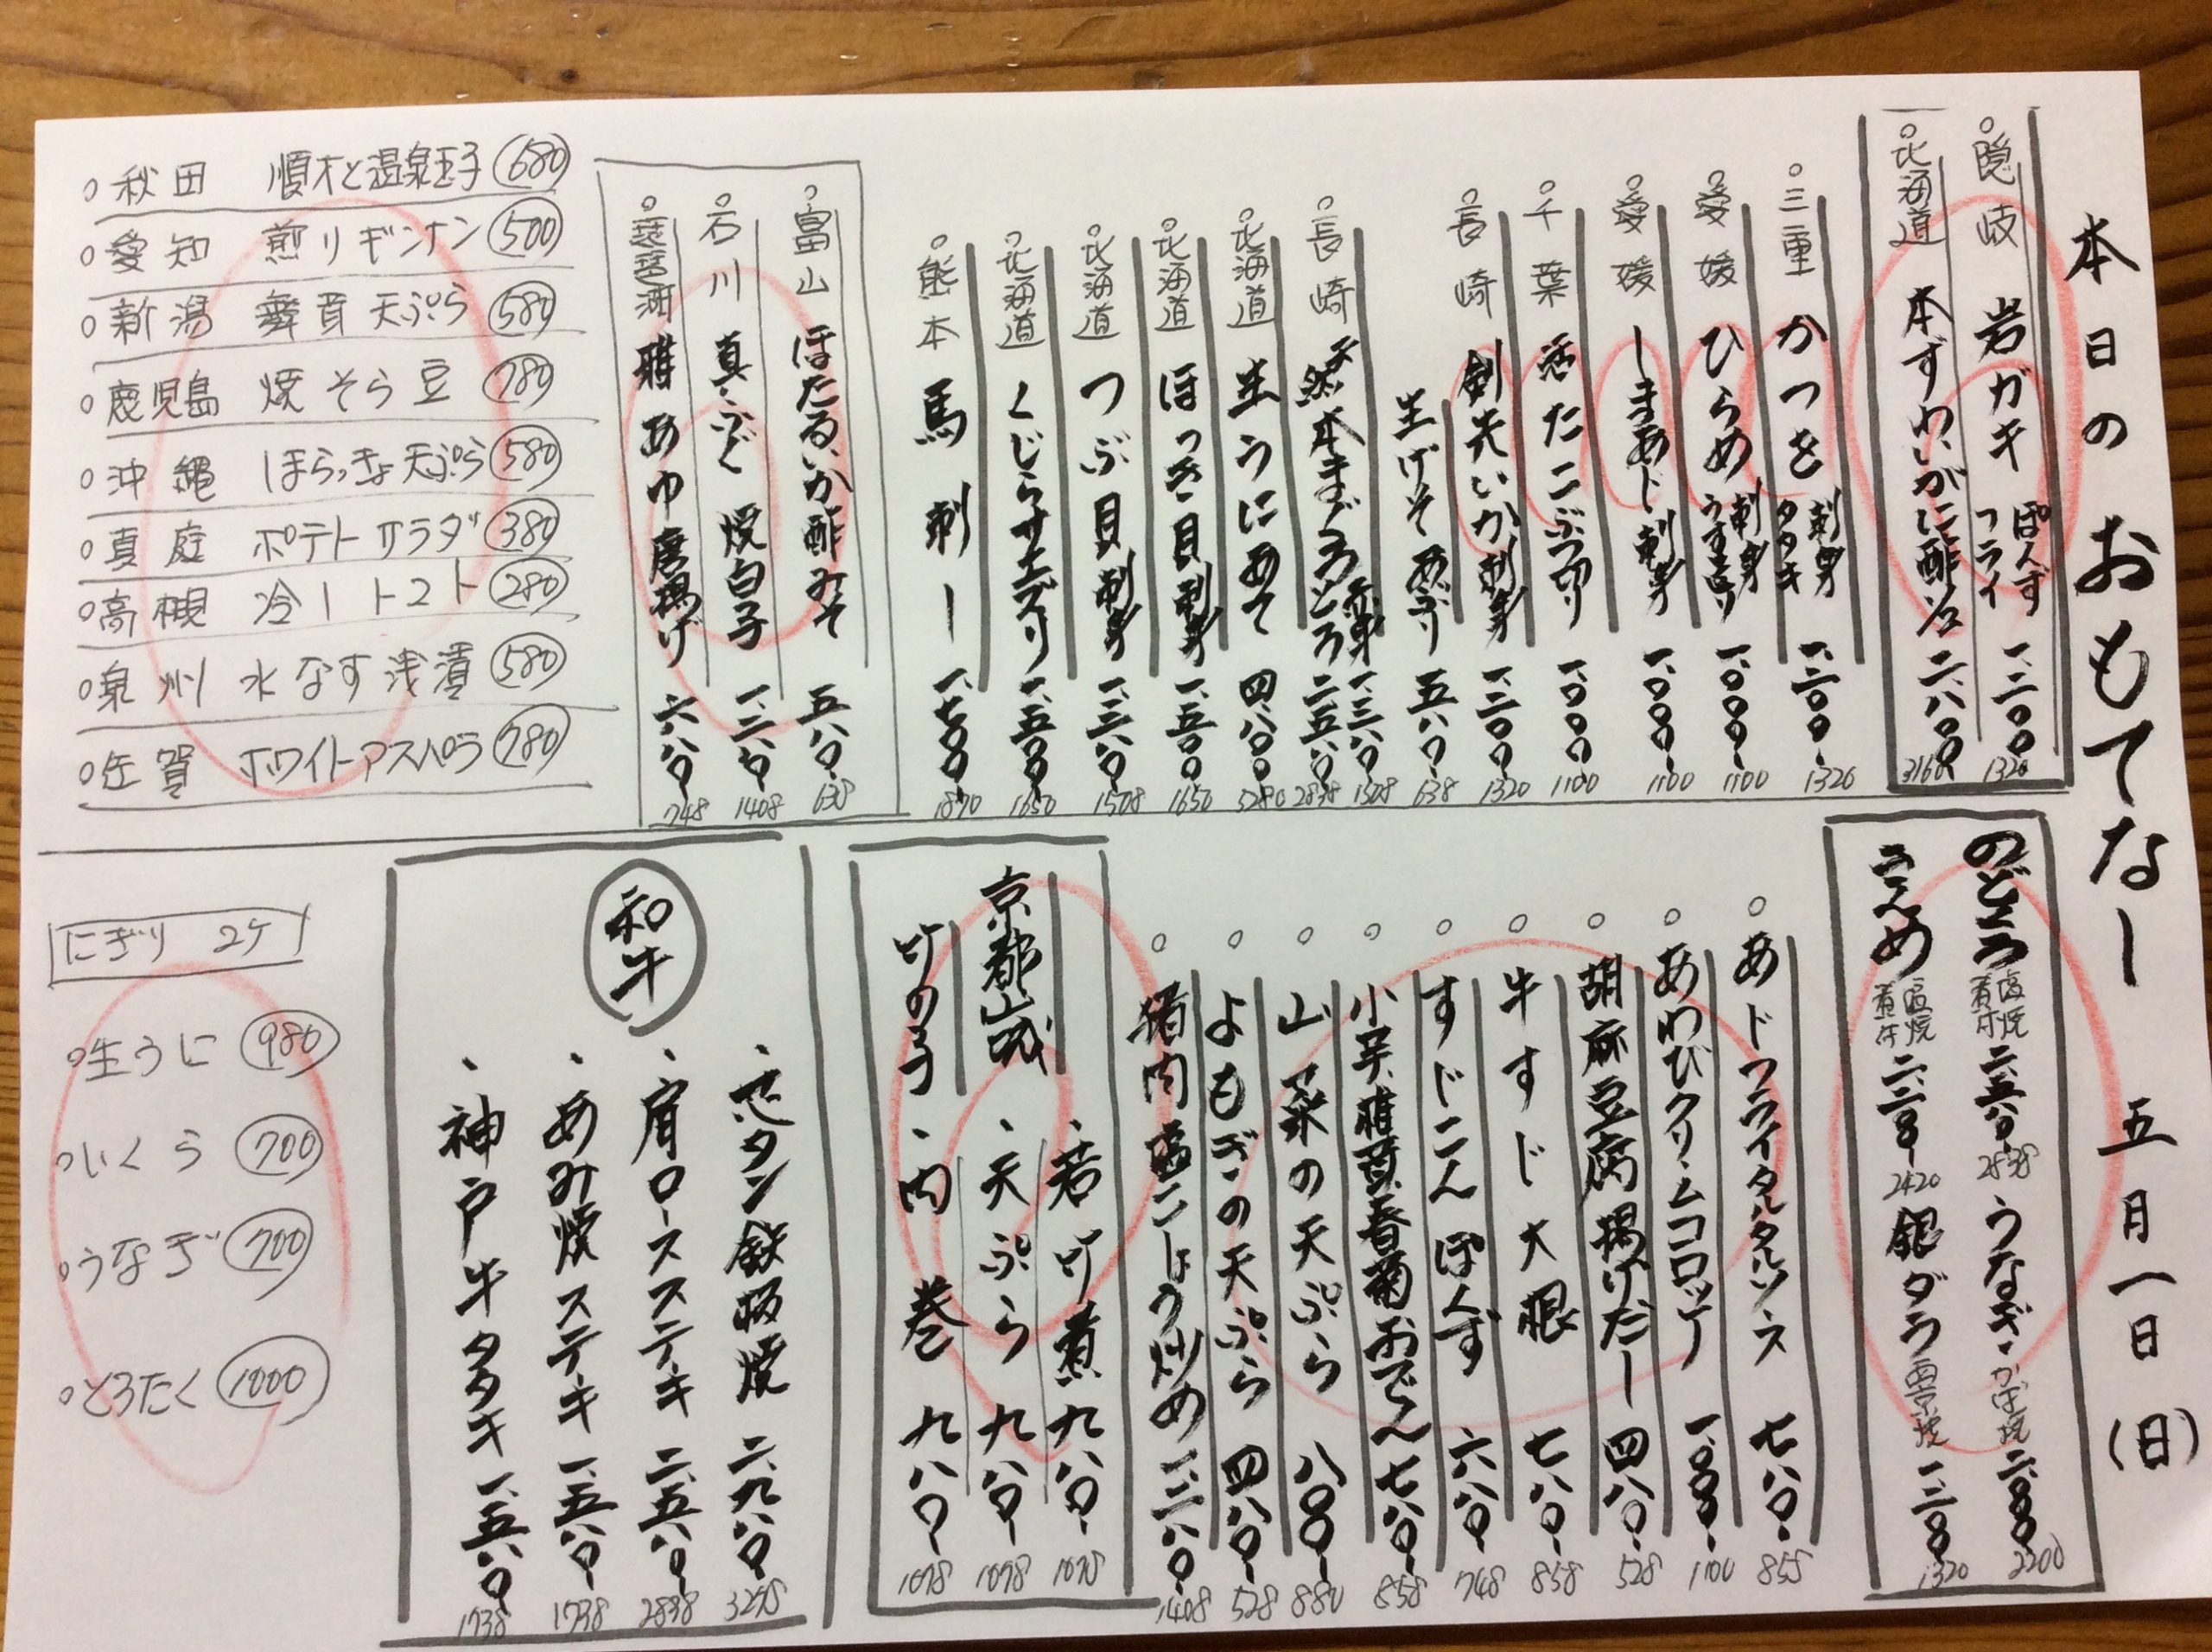 本日のおもてなし 五月一日(日)
隠岐 岩ガキ ぽんず フライ 一、二〇〇 1320
北海道 本ずわいがに酢 二、八〇〇 3160
三重 かつを 刺身 タタキ 一、二〇〇 1320
愛媛 ひらめ 刺身 うす造り 一、〇〇〇 1100
愛媛 しまあじ 刺身 一、〇〇〇 1100
千葉 活たこぶつ切り 一、〇〇〇 1100
長崎 剣先いか刺身 一、二〇〇 1320
生げそあぶり 五八〇 638
長崎 天然本まぐろ 赤身 一、三八〇 1508 とろ 二、五八〇 2838
北海道 生うにあて 四、八〇〇 5280
北海道 ほっき貝刺身 一、五〇〇 1650
北海道 つぶ貝刺身 一、三八〇 1508
北海道 くじらサエズリ 一、五〇〇 1650
熊本 馬刺し 一、七〇〇 1870
富山 ほたるいか酢みそ 五八〇 638
石川 真ふぐ 焼白子 一、二八〇 1408
琵琶湖 稚あゆ唐揚げ 六八〇 748
秋田 順才と温泉玉子 680
愛知 煎りギンナン 500
新潟 舞茸天ぷら 580
鹿児島 焼そら豆 780
沖縄 しまらっきょ天ぷら 580
真庭 ポテトサラダ 380
高槻 冷しトマト 280
泉州 水なす浅漬 580
佐賀 ホワイトアスパラ 780
のどぐろ 塩焼 煮付 二、五八〇 2838 うなぎ かば焼 二、〇〇〇 2200
きんめ 塩焼 煮付 二、二〇〇 2420 銀ダラ 西京焼 一、二〇〇 1320
あじフライタルタルソース 七八〇 858
あわびクリームコロッケ 一、〇〇〇 1100
胡麻豆腐揚げだし 四八〇 528
牛すじ大根 七八〇 858
すじこんぽんず 六八〇 748
小芋 椎茸 春菊おでん 七八〇 858
山菜の天ぷら 八〇〇 880
よもぎの天ぷら 四八〇 528
猪肉塩こしょう炒め 一、二八〇 1408
京都山城 竹の子
・若竹煮 九八〇 1078
・天ぷら 九八〇 1078
・肉巻 九八〇 1078
和牛
・芯タン鉄板焼 二、九八〇 3278
・肩ロースステーキ 二、五八〇 2838
・あみ焼ステーキ 一、五八〇 1738
・神戸牛タタキ 一、五八〇 1738
にぎり 2ケ
生うに 980
いくら 700
うなぎ 700
とろたく 1000